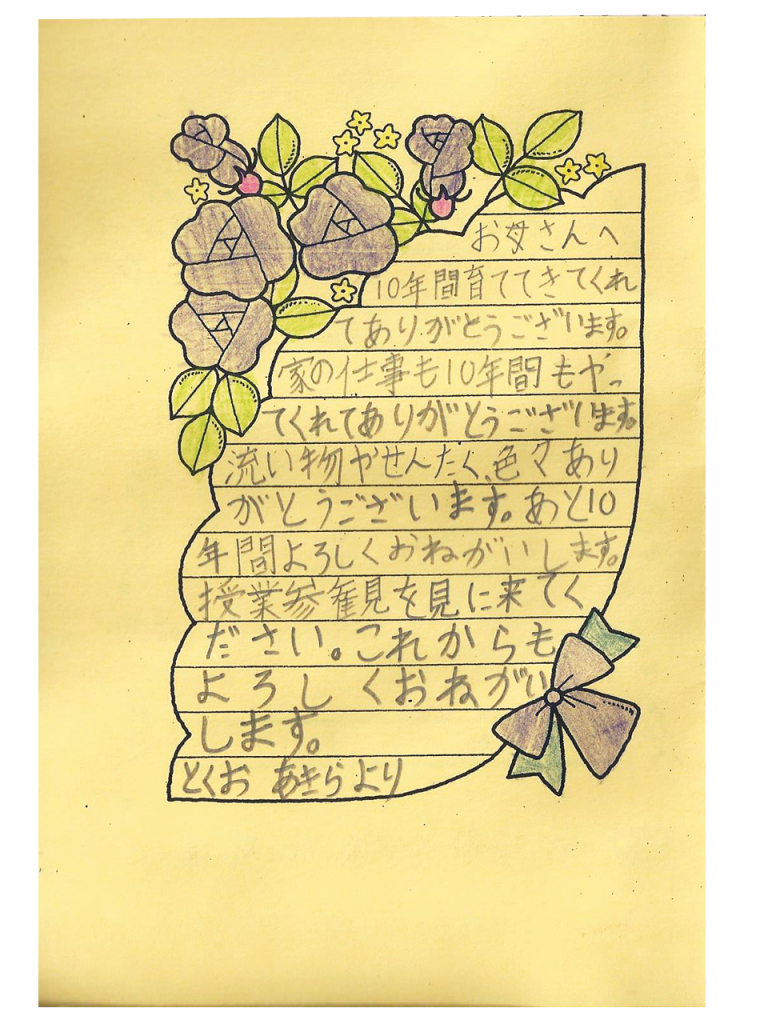 お母さんへ
10年間育ててきてくれ
てありがとうございます。
家の仕事も10年間もやっ
てくれてありがとうございます。
流い物やせんたく、色々あり
がとうございます。あと10
年間よろしくおねがいします。
授業参観を見に来てく
ださい。これからも
よろしくおねがい
します。
とくお あきらより